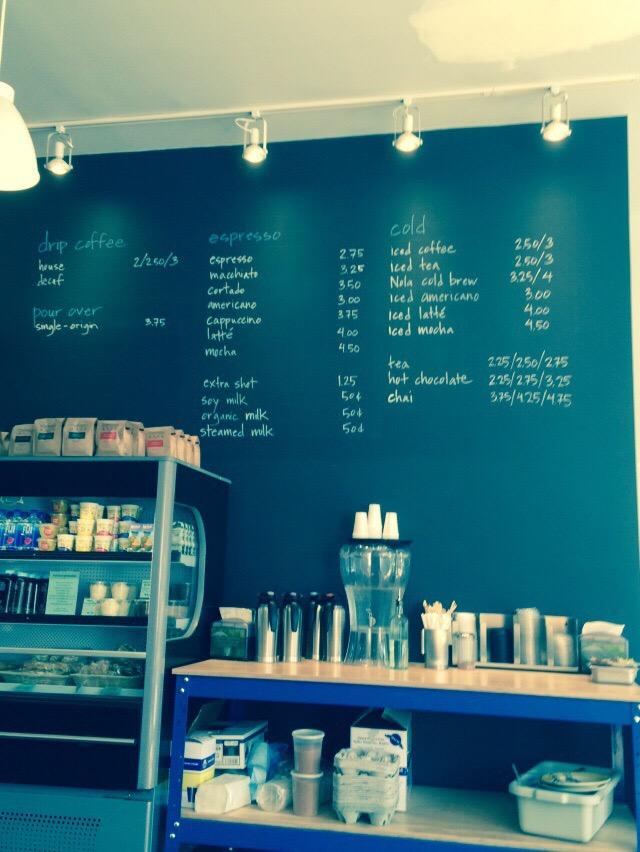 drip coffee
house 2/2.50/3
decaf
pour over
single-origin 3.75
espresso
espresso 2.75
macchiato 3.25
cortado 3.50
americano 3.00
cappuccino 3.75
latté 4.00
mocha 4.50
extra shot 1.25
soy milk 50¢
organic milk 50¢
steamed milk 50¢
cold
Iced coffee 2.50/3
Iced tea 2.50/3
Nola cold brew 3.25/4
Iced americano 3.00
Iced latté 4.00
Iced mocha 4.50
tea 2.25/2.50/2.75
hot chocolate 2.25/2.75/3.25
chai 3.75/4.25/4.75
FIJI